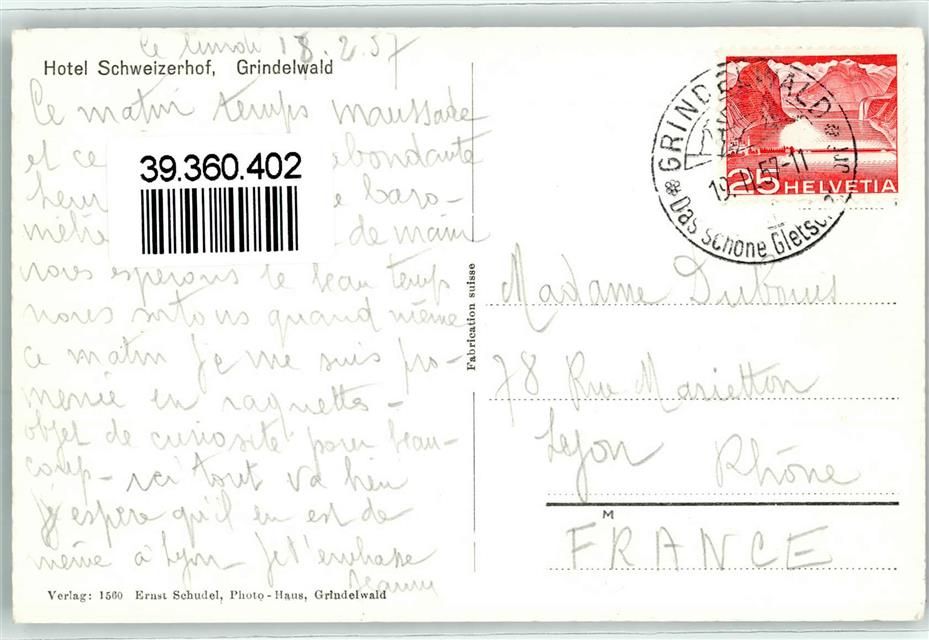 Le lundi 18.2.57
Hotel Schweizerhof, Grindelwald
Ce matin temps maussade
et ce abondante
39.360.402
heur e baro-
mètre de main
nous esperons le beau temps
nous sortons quand même
ce matin je me suis pro-
menée en raquettes -
objet de curiosité pour beau-
coup - ici tout va bien
j'espère qu'il en est de
même à Lyon - je t'embrasse
Verlag: 1560 Ernst Schudel, Photo-Haus, Grindelwald
Fabrication suisse
GRINDELWALD
19.II.57-11
Das schöne Gletsch
25 HELVETIA
Madame Dubouis
78 Rue Marietton
Lyon Rhône
M
FRANCE